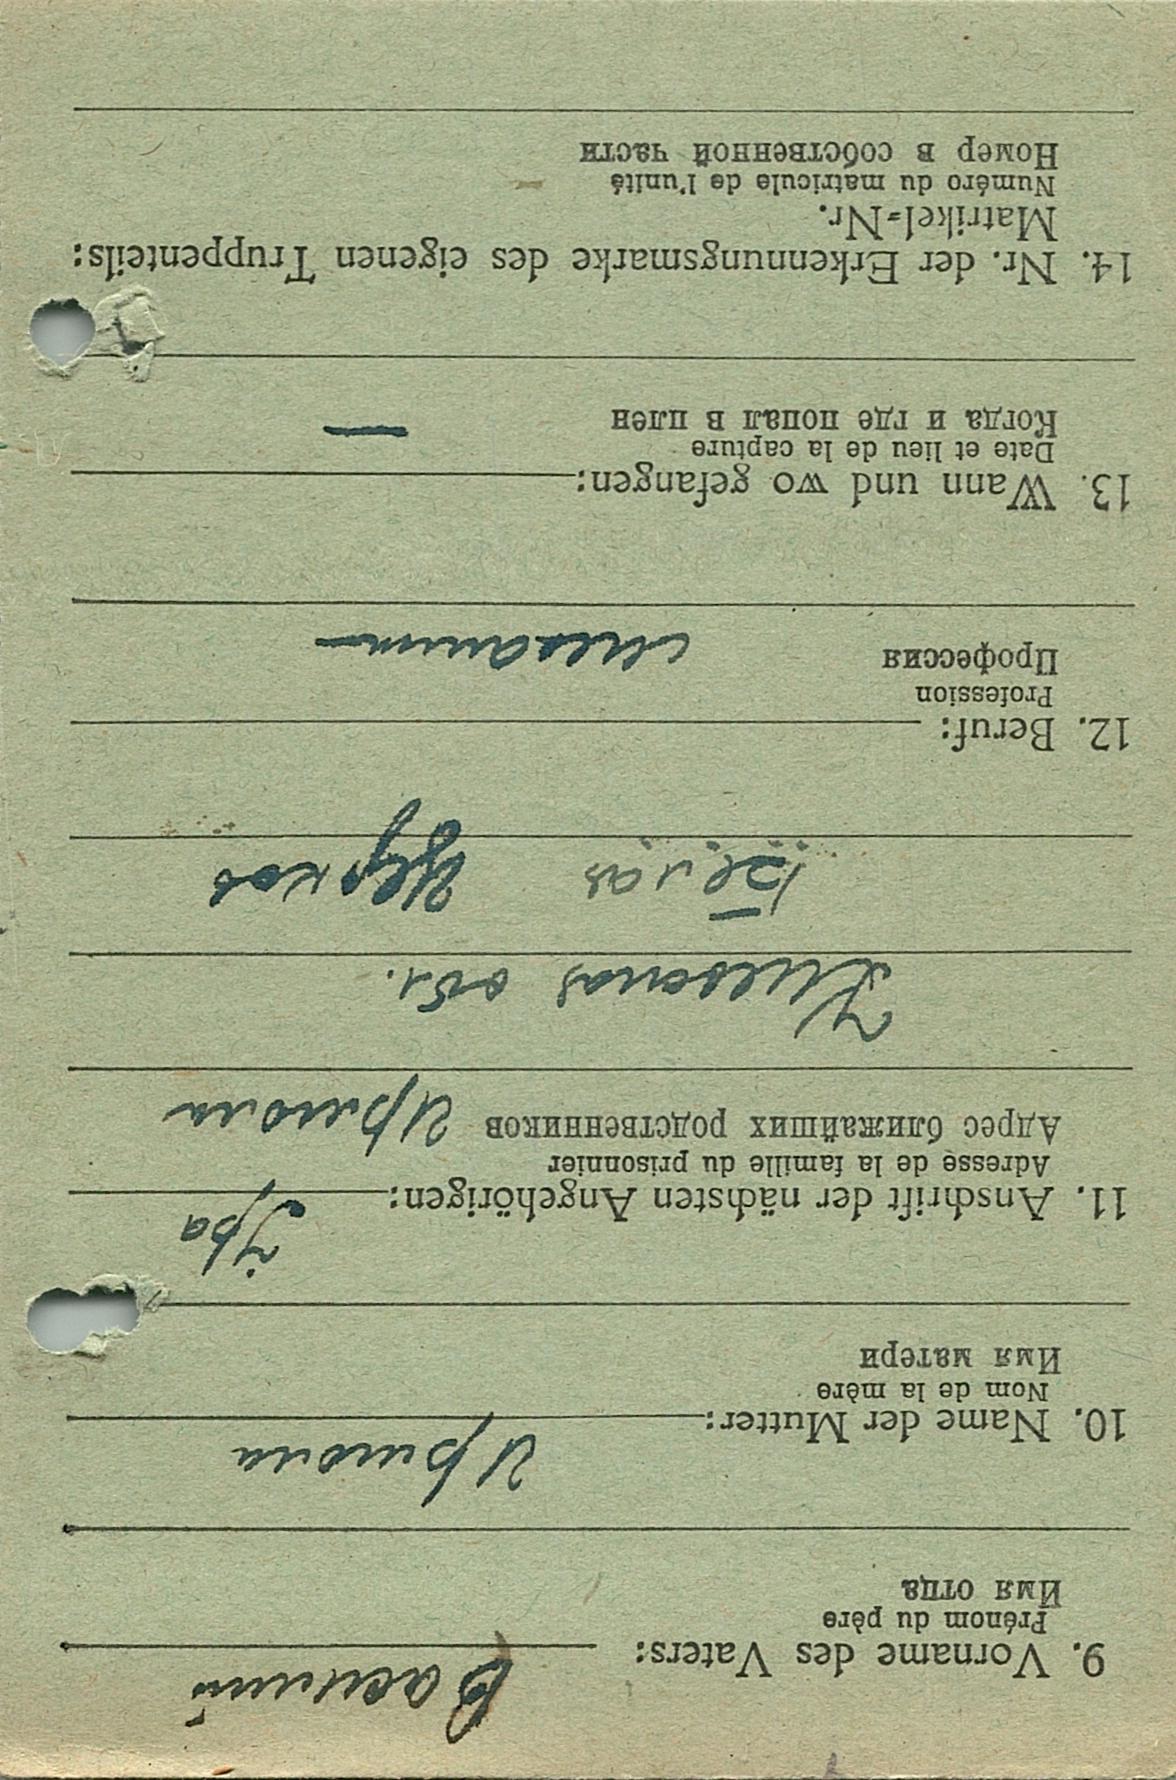 9. Vorname des Vaters:
Prénom du père
Имя отца
Василий
10. Name der Mutter:
Nom de la mère
Имя матери
11. Anschrift der nächsten Angehörigen:
Adresse de la famille du prisonnier
Адрес ближайших родственников
Киевская обл.
Белая Церков
12. Beruf:
Profession
Профессия
13. Wann und wo gefangen:
Date et lieu de la capture
Когда и где попал в плен
—
14. Nr. der Erkennungsmarke des eigenen Truppenteils:
Matrikel=Nr.
Numéro du matricule de l'unité
Номер в собственной части